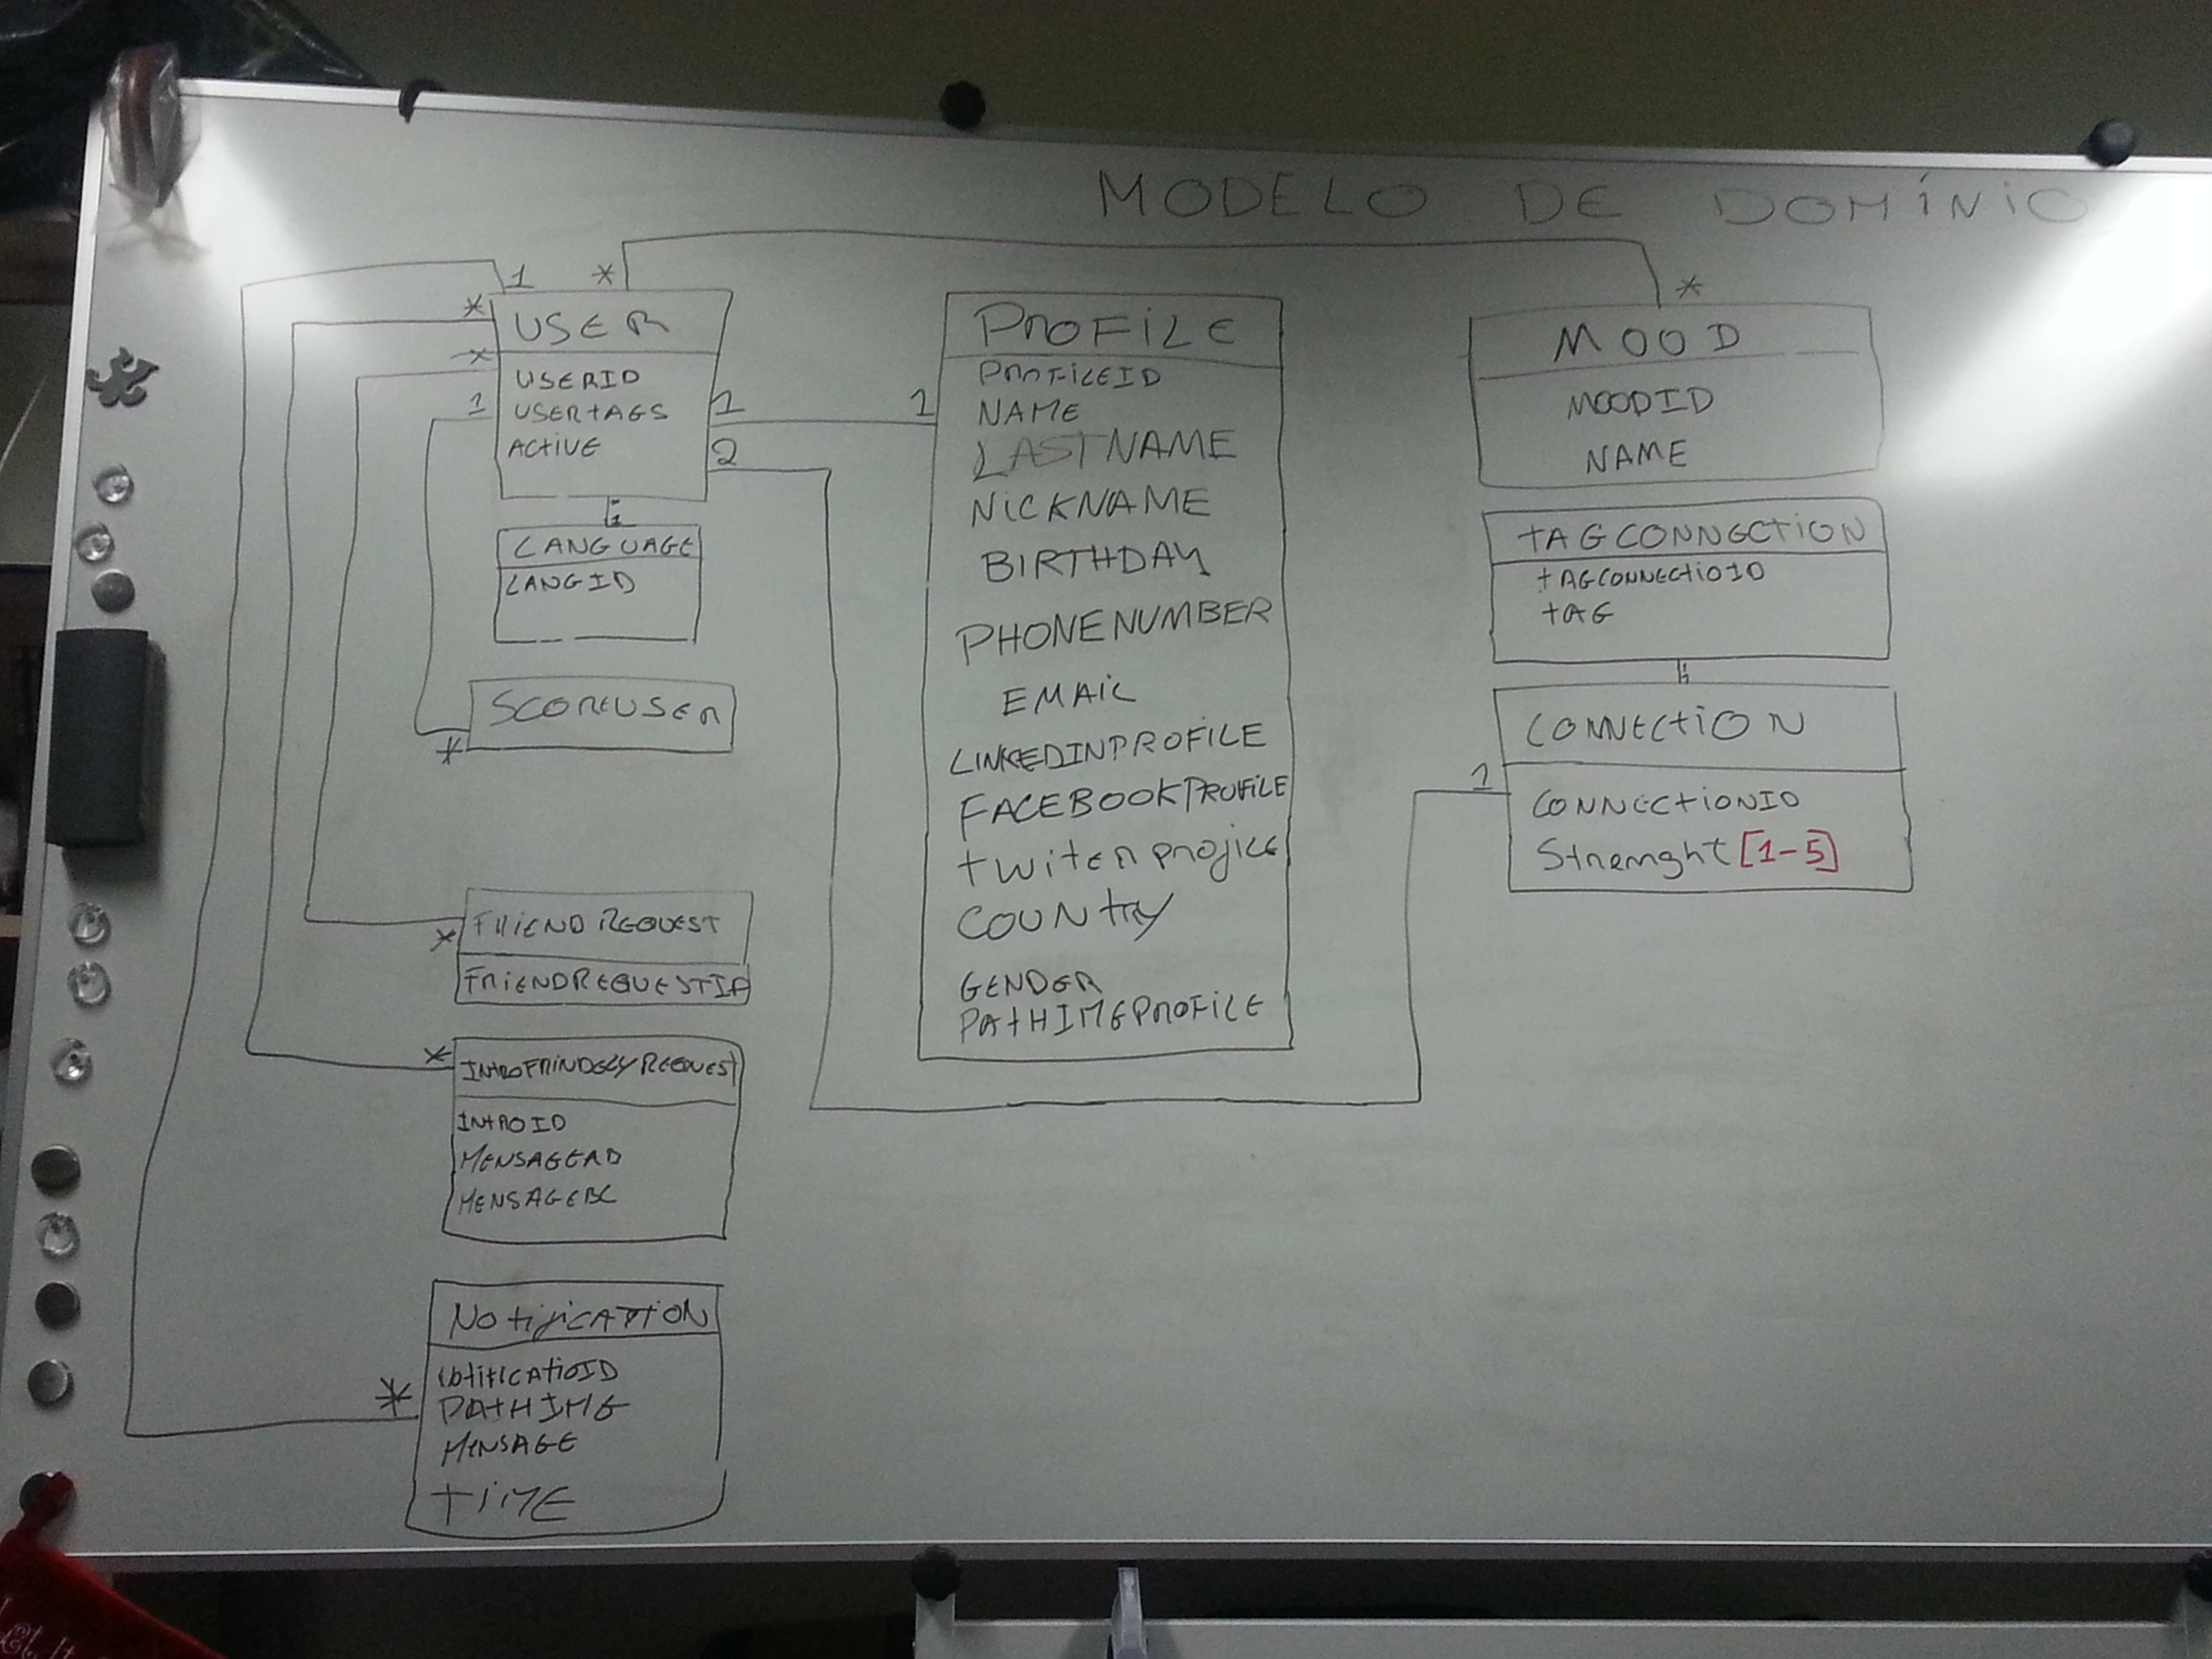 MODELO DE DOMÍNIO
1 *
*
USER
*
USERID
USERTAGS
ACTIVE
1
1
2
1
LANGUAGE
LANGID
SCOREUSER
*
FRIENDREQUEST
*
FRIENDREQUESTID
*
INTROFRINDGLYREQUEST
INTROID
MENSAGEAB
MENSAGEBC
NOTIFICATION
NOTIFICATIOID
*
PATHIMG
MENSAGE
TIME
PROFILE
PROFILEID
1
NAME
LASTNAME
NICKNAME
BIRTHDAY
PHONENUMBER
EMAIL
LINKEDINPROFILE
FACEBOOKPROFILE
TWITER PROFILE
COUNTRY
GENDER
PATHIMGPROFILE
*
MOOD
MOODID
NAME
TAGCONNECTION
TAGCONNECTIOID
TAG
CONNECTION
1
CONNECTIONID
Strenght [1-5]